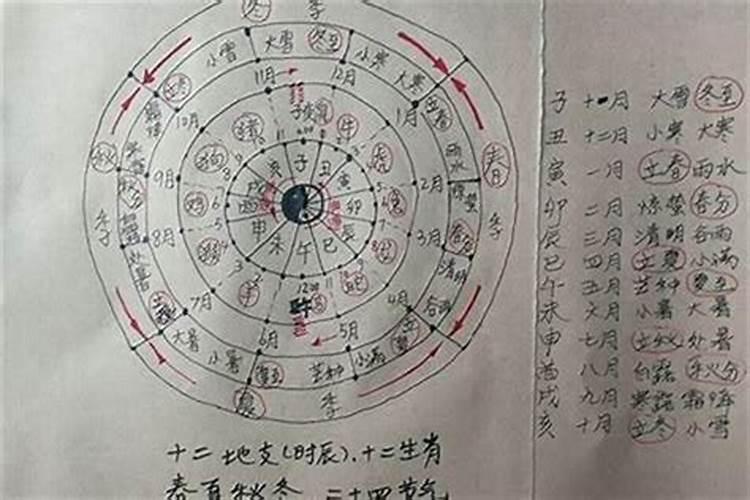 冬 季
小雪 大雪 冬至 小寒 大寒
立冬 11月 12月 立春
10月 1月
秋 季
9月 2月
8月 3月
7月 4月
6月 5月
雨水
惊蛰
春分
清明
谷雨
春 季
猪 牛
狗 虎
鸡 兔
猴
羊 蛇
子 丑 寅 卯 辰 巳 午 未 申 酉 戌 亥
秋分
处暑
大暑 小暑 夏至 芒种 小满
夏 季
子 十一月 大雪 冬至
丑 十二月 小寒 大寒
寅 一月 立春 雨水
卯 二月 惊蛰 春分
辰 三月 清明 谷雨
巳 四月 立夏 小满
午 五月 芒种 夏至
未 六月 小暑 大暑
申 七月 立秋 处暑
酉 八月 白露 秋分
戌 九月 寒露 霜降
亥 十月 立冬 小雪
十二地支(时辰)、十二生肖
春夏秋冬 二十四节气